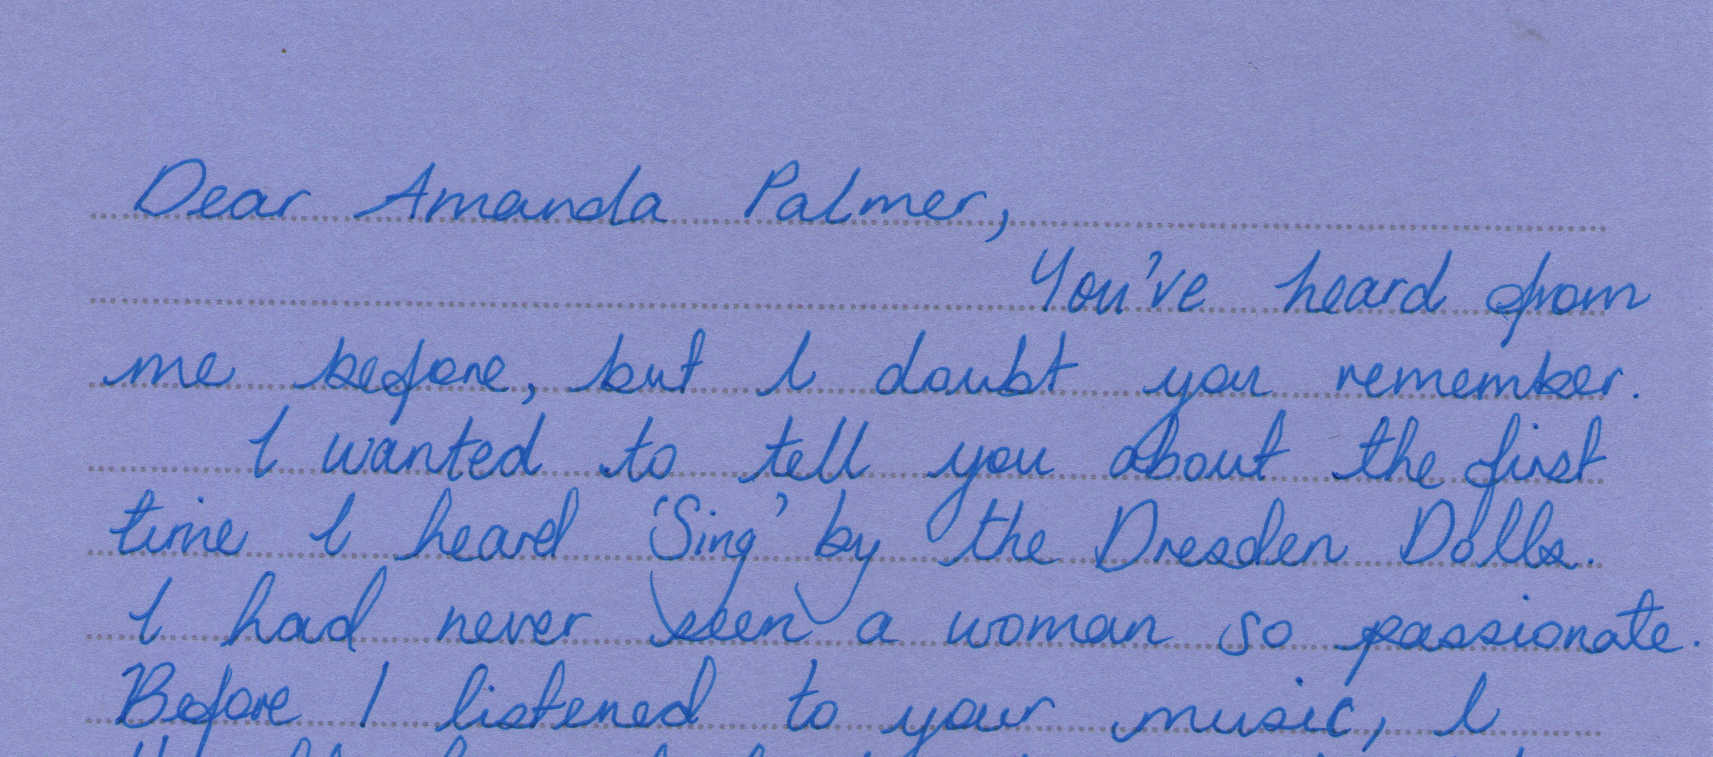 Dear Amanda Palmer,
You've heard from
me before, but I doubt you remember.
I wanted to tell you about the first
time I heard 'Sing' by the Dresden Dolls.
I had never seen a woman so passionate.
Before I listened to your music, I